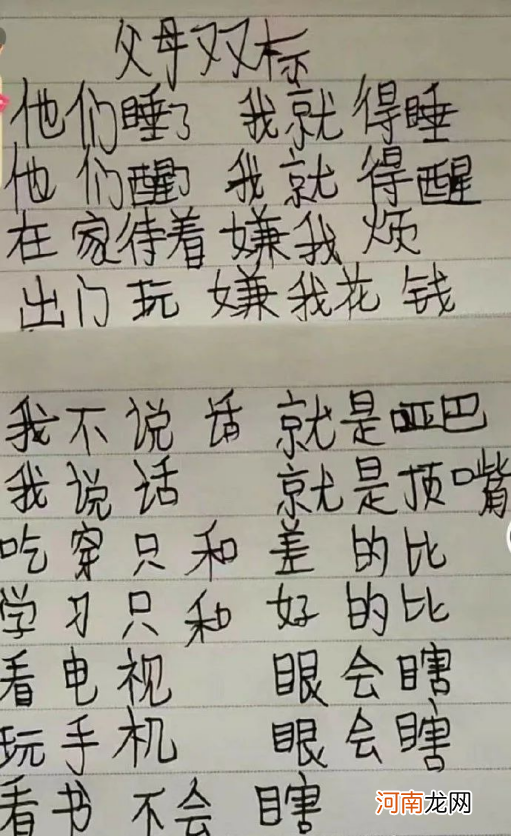 父母双标
他们睡了 我就得睡
他们醒了 我就得醒
在家待着嫌我烦
出门玩 嫌我花钱
我不说话 就是哑巴
我说话 就是顶嘴
吃穿只和差的比
学习只和好的比
看电视 眼会瞎
玩手机 眼会瞎
看书不会瞎
河南龙网